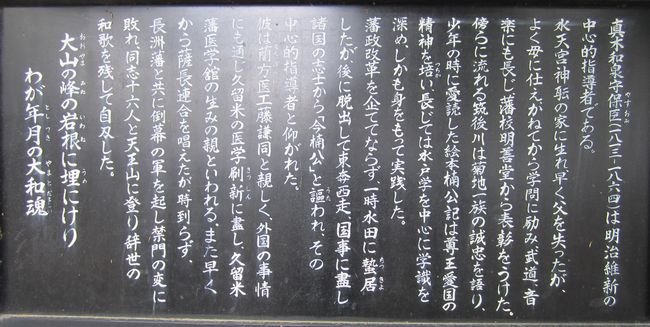 真木和泉守保臣(一八一三-一八六四)は明治維新の
中心的指導者である。
水天宮神職の家に生れ早く父を失ったが、
よく母に仕えかねてから学問に励み武道、音
楽にも長じ藩校明善堂から表彰をうけた。
傍らに流れる筑後川は菊地一族の誠忠を語り、
少年の時に愛読した絵本楠公記は尊王愛国の
精神を培い、長じては水戸学を中心に学識を
深め、しかも身をもって実践した。
藩政改革を企ててならず一時水田に蟄居
したが後に脱出して東奔西走、国事に盡し
諸国の志士から「今楠公」と謳われ、その
中心的指導者と仰がれた。
彼は蘭方医工藤謙同と親しく、外国の事情
にも通じ久留米の医学刷新に盡し、久留米
藩医学館の生みの親といわれる。また早く
から薩長連合を唱えたが時到らず、
長洲藩と共に倒幕の軍を起し禁門の変に
敗れ、同志十六人と天王山に登り辞世の
和歌を残して自刃した。
大山の峰の岩根に埋にけり
わが年月の大和魂